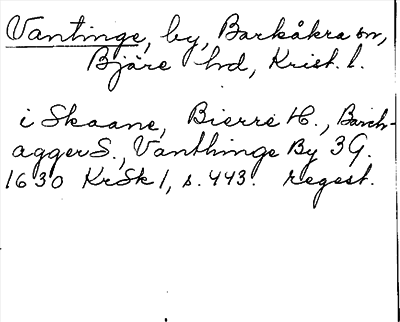 Vantinge, by, Barkåkra sn,
Bjäre hd, Krist. l.
i Skaane, Bierre H., Barch-
agger S., Vanthinge By 3 G.
1630 KrSk 1, s. 443. regest.